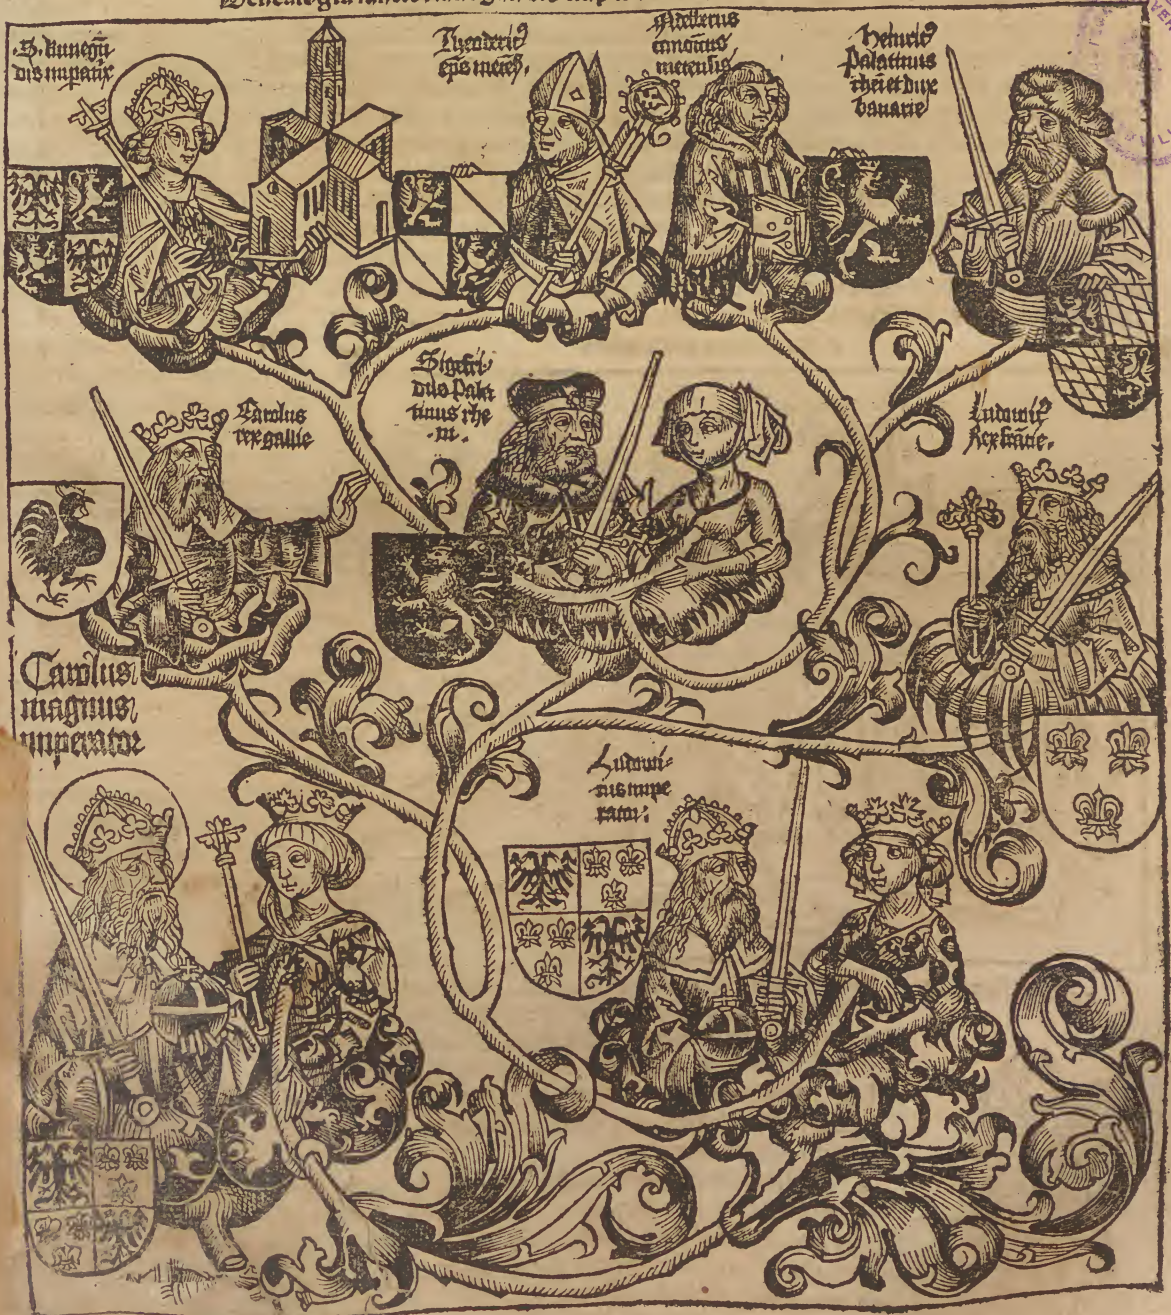 .S. kunegū
dis impatrix
Theoderic⁹
eps meteñ.
canonicus
metensis
Heinric⁹
Palatinus
rheni et dux
bauarie
Carolus
rex gallie
Sigefri⸗
dus Palа
tinus rhe
ni.
Ludowic⁹
Rex francie.
Carolus
magnus
imperator
Ludoui⸗
cus impe
rator.